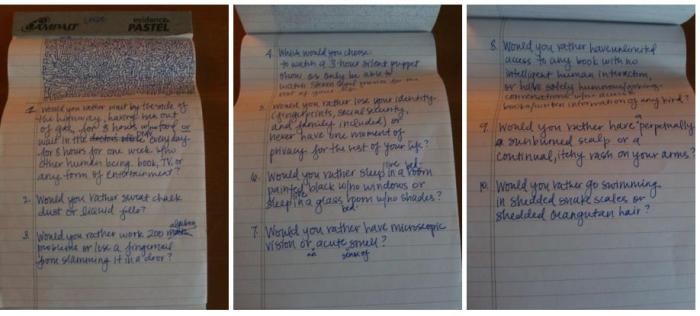 AMPAD
evidence
PASTEL
1. Would you rather wait by the side of
the highway, having run out
of gas, for 8 hours w/no food or
wait in the doctors office everyday
for 8 hours for one week w/no
other human being, book, TV, or
any form of entertainment?
2. Would you rather sweat chalk
dust or liquid jello?
3. Would you rather work 200 math algebra
problems or lose a fingernail
from slamming it in a door?
4. What would you choose:
to watch a 3 hour silent puppet
show or only be able to
watch
5. Would you rather lose your identity
(fingerprints, social security,
and family included) or
never have one moment of
privacy for the rest of your life?
6. Would you rather sleep in a room
painted black w/no windows or
sleep in a glass room w/no shades?
7. Would you rather have microscopic
vision or an acute sense of smell?
8. Would you rather have unlimited
access to any book with no
intelligent human interaction,
or have solely humorous/joking
conversations w/no access to
books/written information of any kind?
9. Would you rather have a perpetually
sunburned scalp or a
continual, itchy rash on your arms?
10. Would you rather go swimming
in shedded snake scales or
shedded orangutan hair?